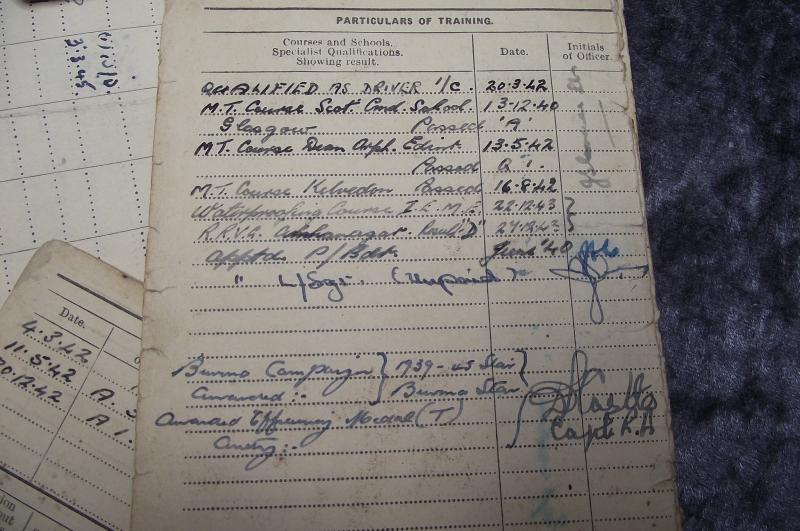 PARTICULARS OF TRAINING.
Courses and Schools. Date. Initials
Specialist Qualifications. of Officer.
Showing result.
QUALIFIED AS DRIVER I/C. 20.3.42
M.T. Course Scot. Cmd. School. 13-12-40
Glasgow Passed 'A'
M.T. Course Dean Orph. Edinb. 13.5.42
Passed Q 1.
M.T. Course Kelvedon Passed 16.8.42
Waterproofing Course I.E.M.E. 22.12.43
R.R.V.G. Result "D" 27.12.43
Apptd. P/Bdr. June '40
" L/Sgt. (Unpaid)
Burma Campaign } 1939-45 Star }
Awarded :- } Burma Star
Awarded Efficiency Medal (T)
Capt. R.A
3.3.45
Date.
4.3.42
11.5.42
20.12.42
A.
A 1.